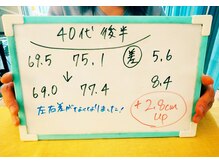 40代後半
69.5 75.1 差 5.6
↓
69.0 77.4 8.4
左右差がなくなりました! +2.8cm
up